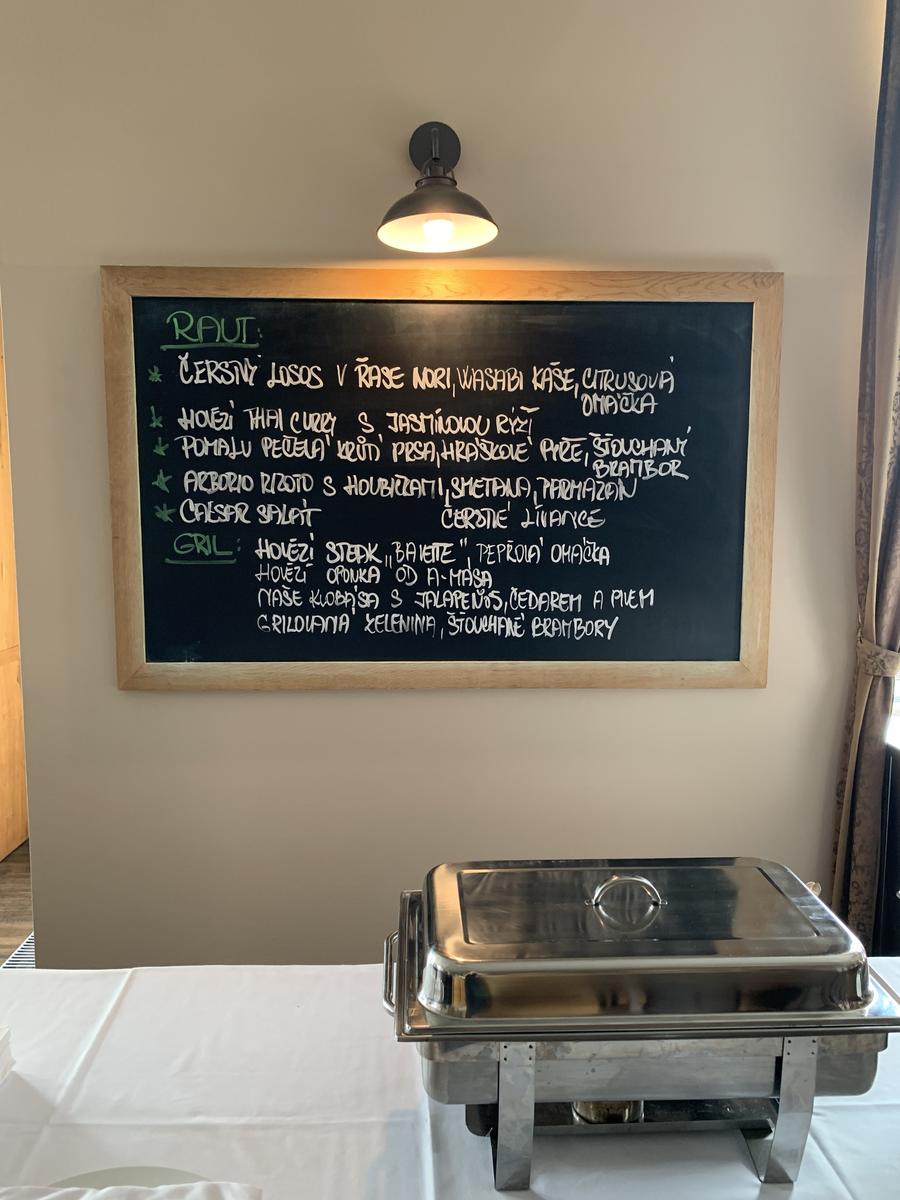 RAUT:
* ČERSTVÝ LOSOS V ŘASE NORI, WASABI KAŠE, CITRUSOVÁ
OMÁČKA
* HOVĚZÍ THAI CURRY S JASMÍNOVOU RÝŽÍ
* POMALU PEČENÁ KRŮTÍ PRSA, HRÁŠKOVÉ PYRÉ, ŠŤOUCHANÝ
BRAMBOR
* ARBORIO RIZOTO S HOUBIČKAMI, SMETANA, PARMAZÁN
* CAESAR SALÁT ČERSTVÉ LÍVANCE
GRIL: HOVĚZÍ STEAK „BAVETE“, PEPŘOVÁ OMÁČKA
HOVĚZÍ OPONKA OD A-MASA
NAŠE KLOBÁSA S JALAPEŇOS, ČEDAREM A PIVEM
GRILOVANÁ ZELENINA, ŠŤOUCHANÉ BRAMBORY